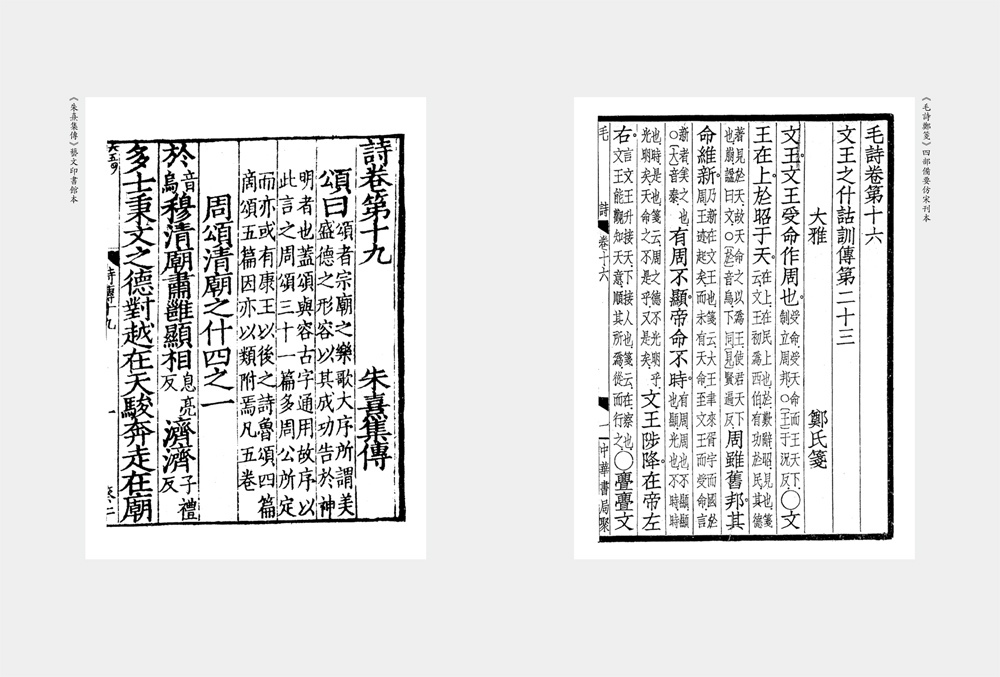 《毛詩鄭箋》四部備要仿宋刊本
毛詩卷第十六
文王之什詁訓傳第二十三
大雅 鄭氏箋
文王文王受命作周也受命受天命而王天下制立周邦○王于況反○文
王在上於昭于天在上在民上也於歎辭昭見也箋云文王初爲西伯有功於民其德
著見於天故天命之以爲王使君天下也崩謚曰文○於音烏下同見賢遍反周雖舊邦其
命維新乃新在文王也箋云大王聿來胥宇而國於周王迹起矣而未有天命至文王而受命言
新者美之也○大音泰有周不顯帝命不時有周周也不顯顯也顯光也不時時
也時是也箋云周之德不光明乎光明矣天命之不是乎又是矣文王陟降在帝左
右言文王升接天下接人也箋云在察也文王能觀知天意順其所爲從而行之○亹亹文
毛詩 卷十六 一 中華書局聚
詩卷第十九 朱熹集傳
頌曰頌者宗廟之樂歌大序所謂美盛德之形容以其成功告於神
明者也蓋頌與容古字通用故序以此言之周頌三十一篇多周公所定
而亦或有康王以後之詩魯頌四篇商頌五篇因亦以類附焉凡五卷
周頌清廟之什四之一
於音烏穆清廟肅雝顯相息亮反濟濟子禮反
多士秉文之德對越在天駿奔走在廟
詩傳十九 一
《朱熹集傳》藝文印書館本